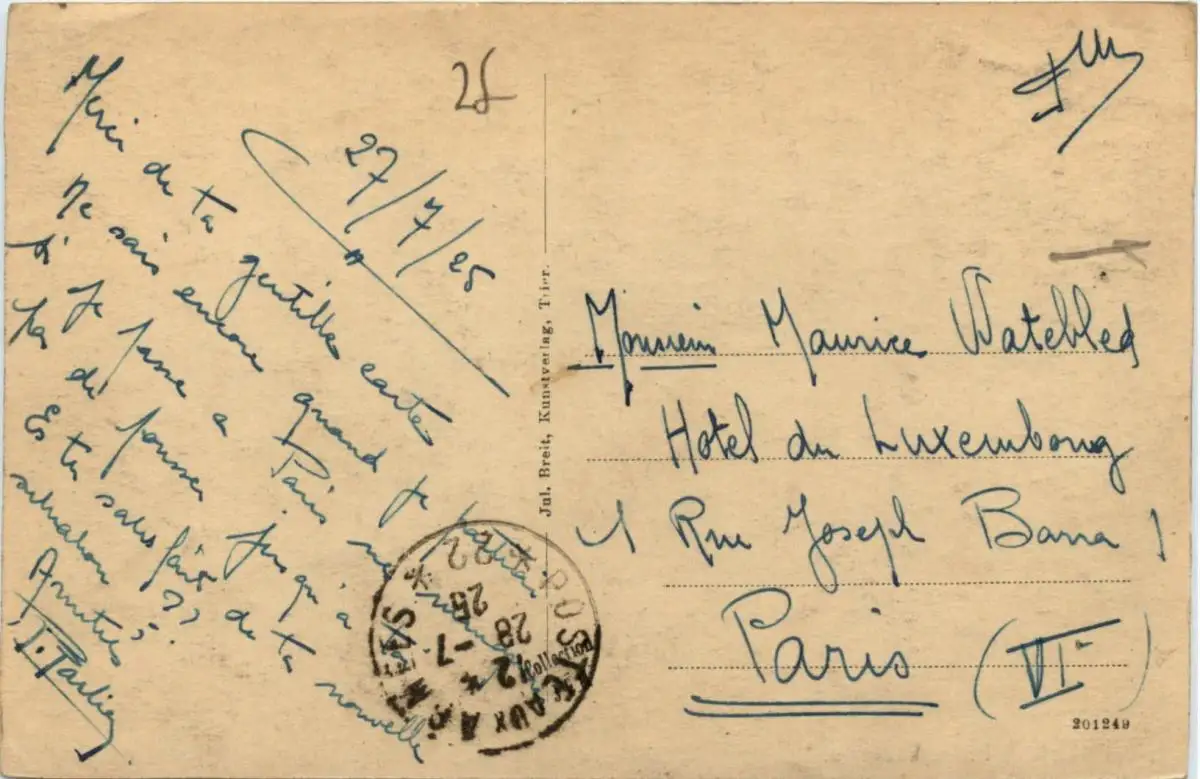 27/7/25
Merci de ta gentille carte
Ne sais encore quand je
si je passe a Paris ne
pas de pousser jusqu'a
Es tu satisfait de ta nouvelle
situation ??
Amitiés
Jul. Breit, Kunstverlag, Trier.
POSTE AUX ARMEES
* 22 *
12
28 -7
25
Collection
Monsieur Maurice Watebled
Hotel du Luxembourg
4 Rue Joseph Bara
Paris (VIe)
201249